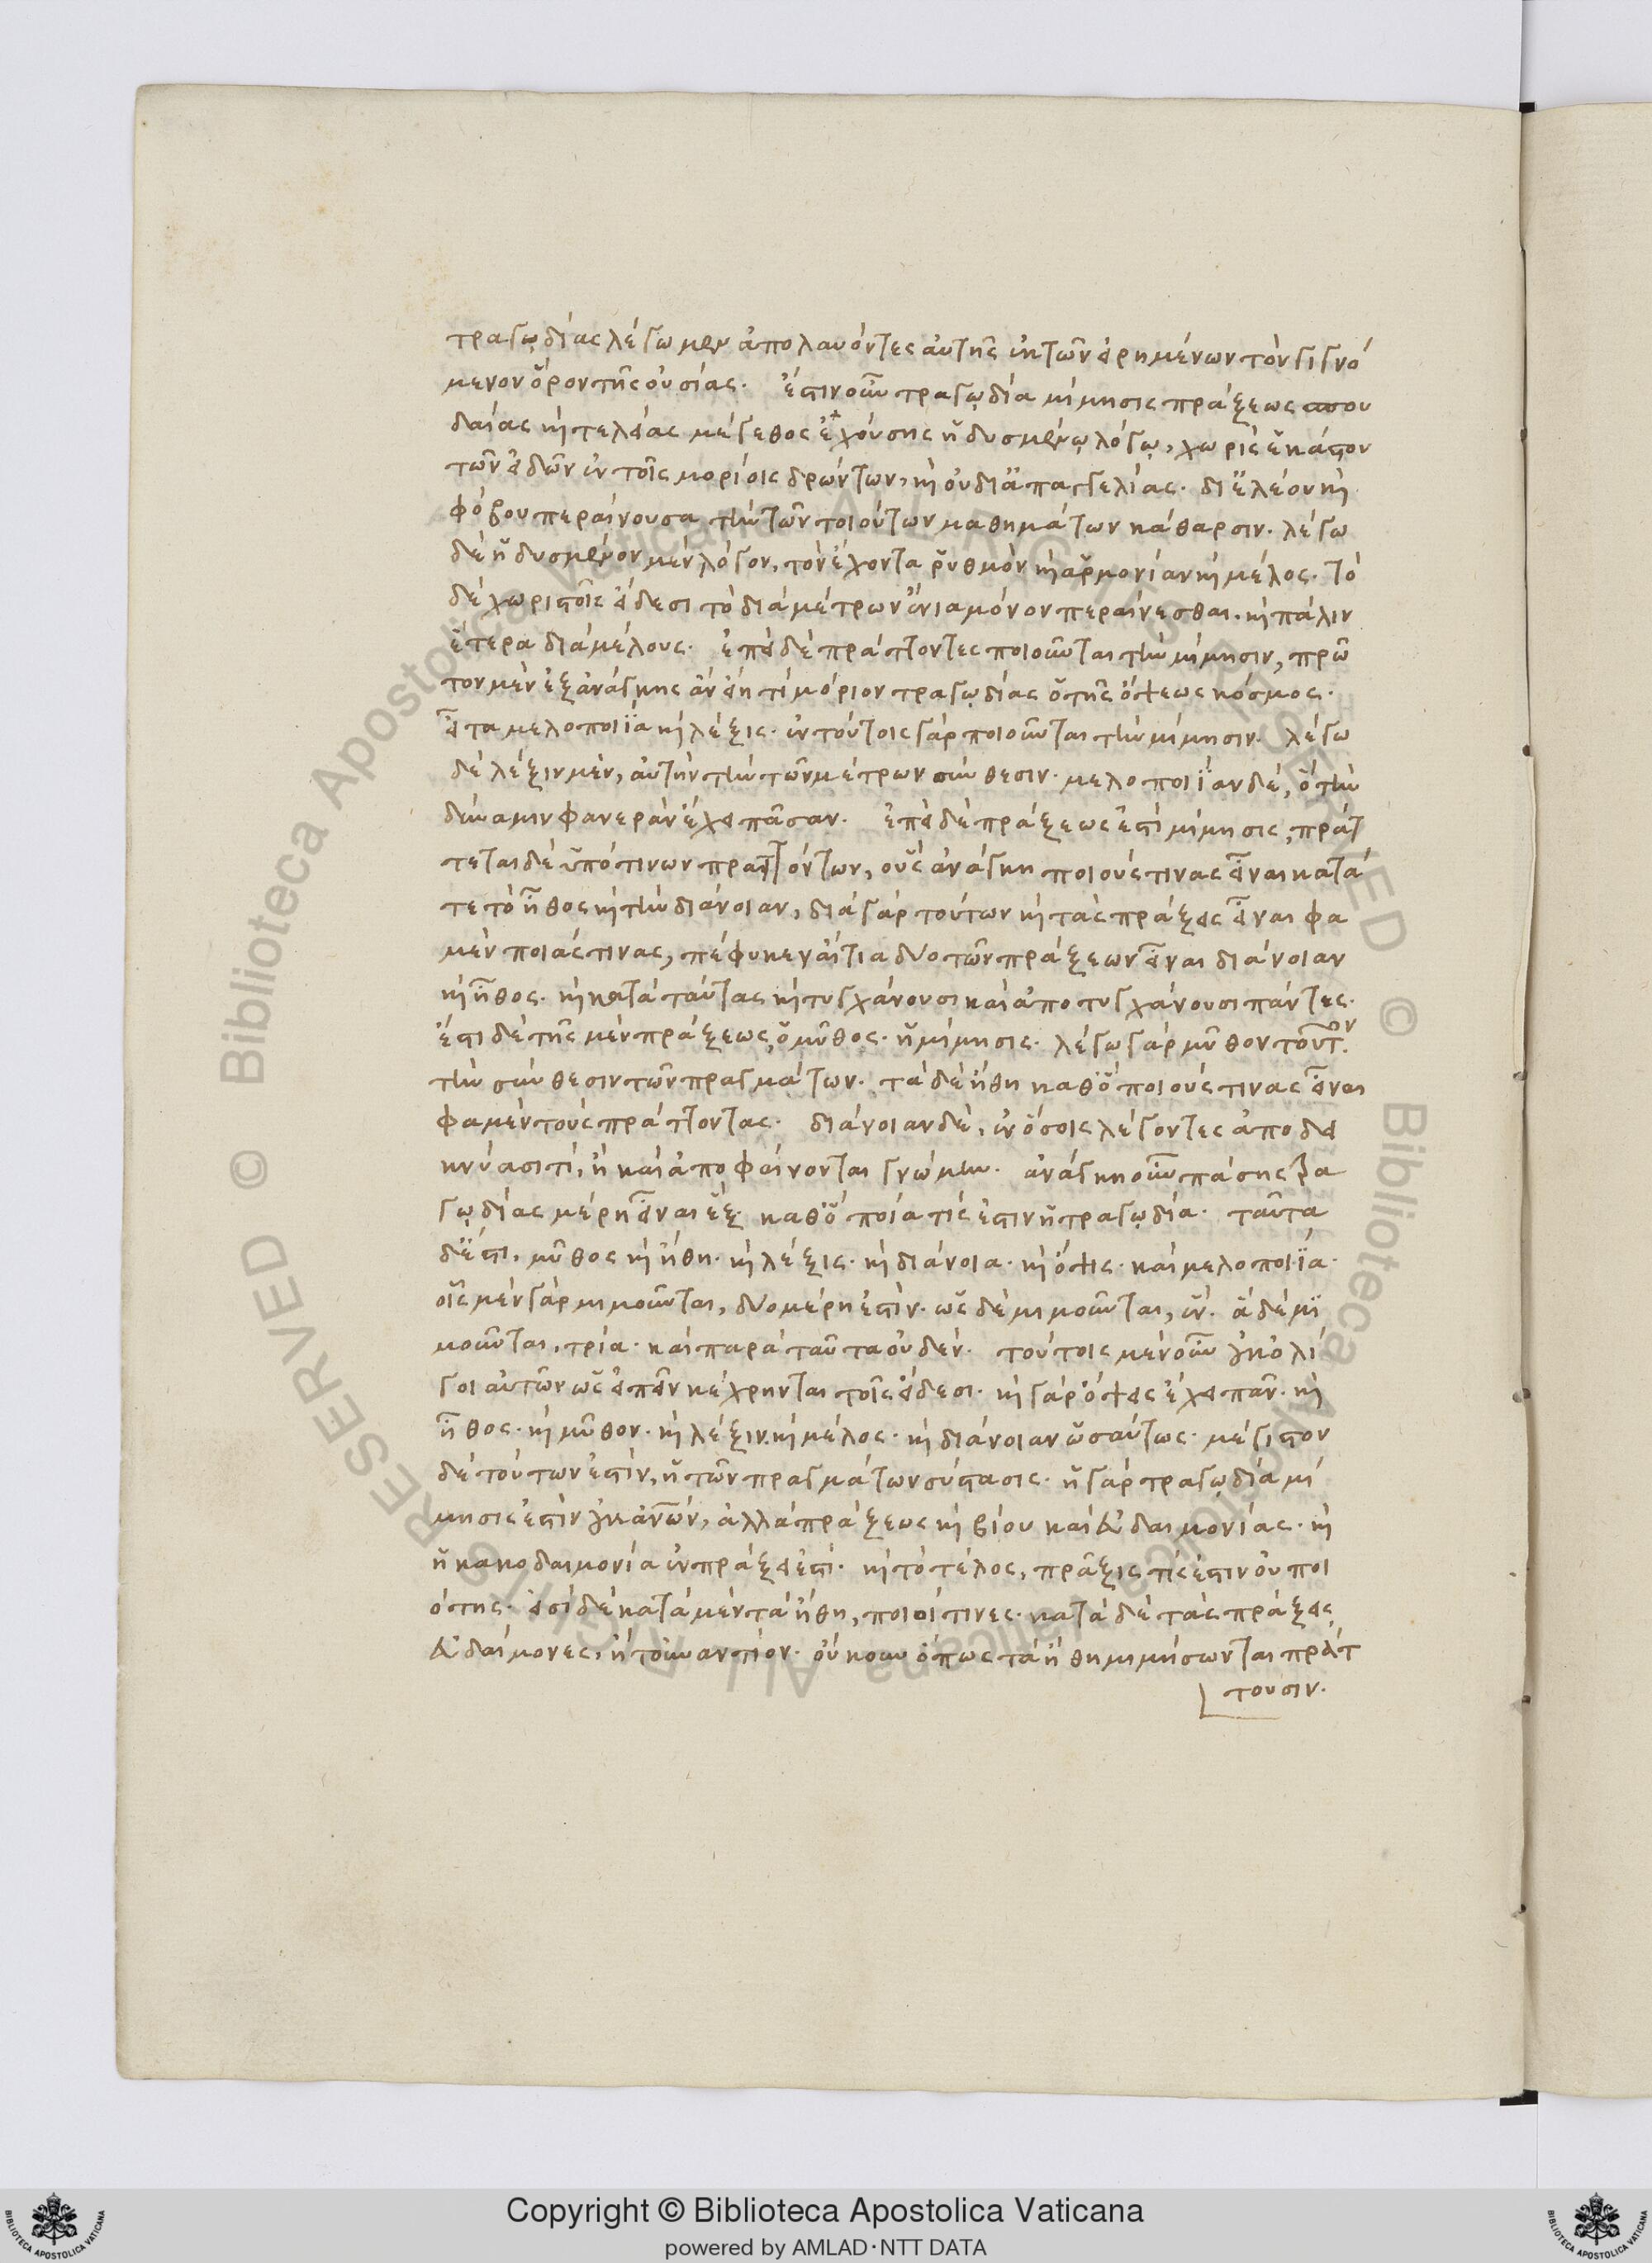 τραγῳδίας λέγωμεν ἀπολαυόντες αὐτῆς ἐκ τῶν εἰρημένων τὸν γιγνό
μενον ὅρον τῆς οὐσίας. ἔστιν οὖν τραγῳδία μίμησις πράξεως σπου
δαίας καὶ τελείας μέγεθος ἐχούσης ἡδυσμένῳ λόγῳ, χωρὶς ἑκάστου
τῶν εἰδῶν ἐν τοῖς μορίοις δρώντων, καὶ οὐ δι' ἀπαγγελίας. δι' ἐλέου καὶ
φόβου περαίνουσα τὴν τῶν τοιούτων μαθημάτων κάθαρσιν. λέγω
δὲ ἡδυσμένον μὲν λόγον, τὸν ἔχοντα ῥυθμὸν καὶ ἁρμονίαν καὶ μέλος. τὸ
δὲ χωρὶς τοῖς εἴδεσι τὸ διὰ μέτρων ἔνια μόνον περαίνεσθαι. καὶ πάλιν
ἕτερα διὰ μέλους. ἐπεὶ δὲ πράττοντες ποιοῦνται τὴν μίμησιν, πρῶ
τον μὲν ἐξ ἀνάγκης ἂν εἴη τι μόριον τραγῳδίας ὁ τῆς ὄψεως κόσμος.
εἶτα μελοποιΐα καὶ λέξις. ἐν τούτοις γὰρ ποιοῦνται τὴν μίμησιν. λέγω
δὲ λέξιν μὲν, αὐτὴν τὴν τῶν μέτρων σύνθεσιν. μελοποιΐαν δὲ, ὃ τὴν
δύναμιν φανερὰν ἔχει πᾶσαν. ἐπεὶ δὲ πράξεως ἐστὶ μίμησις, πράτ
τεται δὲ ὑπό τινων πραττόντων, οὓς ἀνάγκη ποιούς τινας εἶναι κατά
τε τὸ ἦθος καὶ τὴν διάνοιαν, διὰ γὰρ τούτων καὶ τὰς πράξεις εἶναι φα
μὲν ποιάς τινας, πέφυκεν αἴτια δύο τῶν πράξεων εἶναι διάνοιαν
καὶ ἦθος. καὶ κατὰ ταύτας καὶ τυγχάνουσι καὶ ἀποτυγχάνουσι πάντες.
ἔστι δὲ τῆς μὲν πράξεως, ὁ μῦθος. ἡ μίμησις. λέγω γὰρ μῦθον τοῦτον
τὴν σύνθεσιν τῶν πραγμάτων. τὰ δὲ ἤθη καθ' ὃ ποιούς τινας εἶναι
φαμὲν τοὺς πράττοντας. διάνοιαν δὲ, ἐν ὅσοις λέγοντες ἀποδει
κνύασί τι, ἢ καὶ ἀποφαίνονται γνώμην. ἀνάγκη οὖν πάσης τρα
γῳδίας μέρη εἶναι ἕξ. καθ' ὃ ποιά τίς ἐστιν ἡ τραγῳδία. ταῦτα
δ' ἐστὶ, μῦθος καὶ ἤθη. καὶ λέξις. καὶ διάνοια. καὶ ὄψις. καὶ μελοποιΐα.
οἷς μὲν γὰρ μιμοῦνται, δύο μέρη ἐστίν. ὡς δὲ μιμοῦνται, ἕν. ἃ δὲ μι
μοῦνται, τρία. καὶ παρὰ ταῦτα οὐδέν. τούτοις μὲν οὖν οὐκ ὀλί
γοι αὐτῶν ὡς εἰπεῖν κέχρηνται τοῖς εἴδεσι. καὶ γὰρ ὄψεις ἔχει πᾶν. καὶ
ἦθος. καὶ μῦθον. καὶ λέξιν. καὶ μέλος. καὶ διάνοιαν ὡσαύτως. μέγιστον
δὲ τούτων ἐστὶν, ἡ τῶν πραγμάτων σύστασις. ἡ γὰρ τραγῳδία μί
μησις ἐστὶν οὐκ ἀνῶν, ἀλλὰ πράξεως καὶ βίου καὶ εὐδαιμονίας. καὶ
ἡ κακοδαιμονία ἐν πράξει ἐστί. καὶ τὸ τέλος, πρᾶξις τίς ἐστιν οὐ ποι
ότης. εἰσὶ δὲ κατὰ μὲν τὰ ἤθη, ποιοί τινες. κατὰ δὲ τὰς πράξεις
εὐδαίμονες, ἢ τοὐναντίον. οὔκουν ὅπως τὰ ἤθη μιμήσωνται πράτ
τουσιν.
Copyright © Biblioteca Apostolica Vaticana
powered by AMLAD·NTT DATA